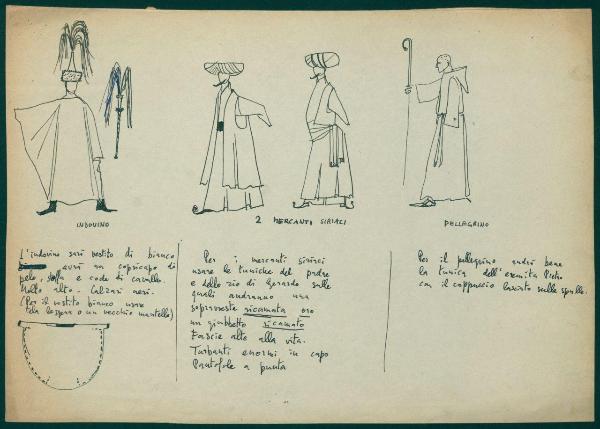 INDOVINO
2 MERCANTI SIRIACI
PELLEGRINO
L'indovino sarà vestito di bianco
avrà un copricapo di
pelo, stoffa e code di cavallo.
Molto alto - Calzari neri.
(Per il vestito bianco usare
tela leggera o un vecchio mantello)
Per i mercanti siriaci
usare le tuniche del padre
e dello zio di Gerardo sulle
quali andranno una
sopraveste ricamata oro
un giubbetto ricamato
Fascie alte alla vita.
Turbanti enormi in capo
Pantofole a punta
Per il pellegrino andrà bene
la tunica dell'eremita Pietro
con il cappuccio lasciato sulle spalle.